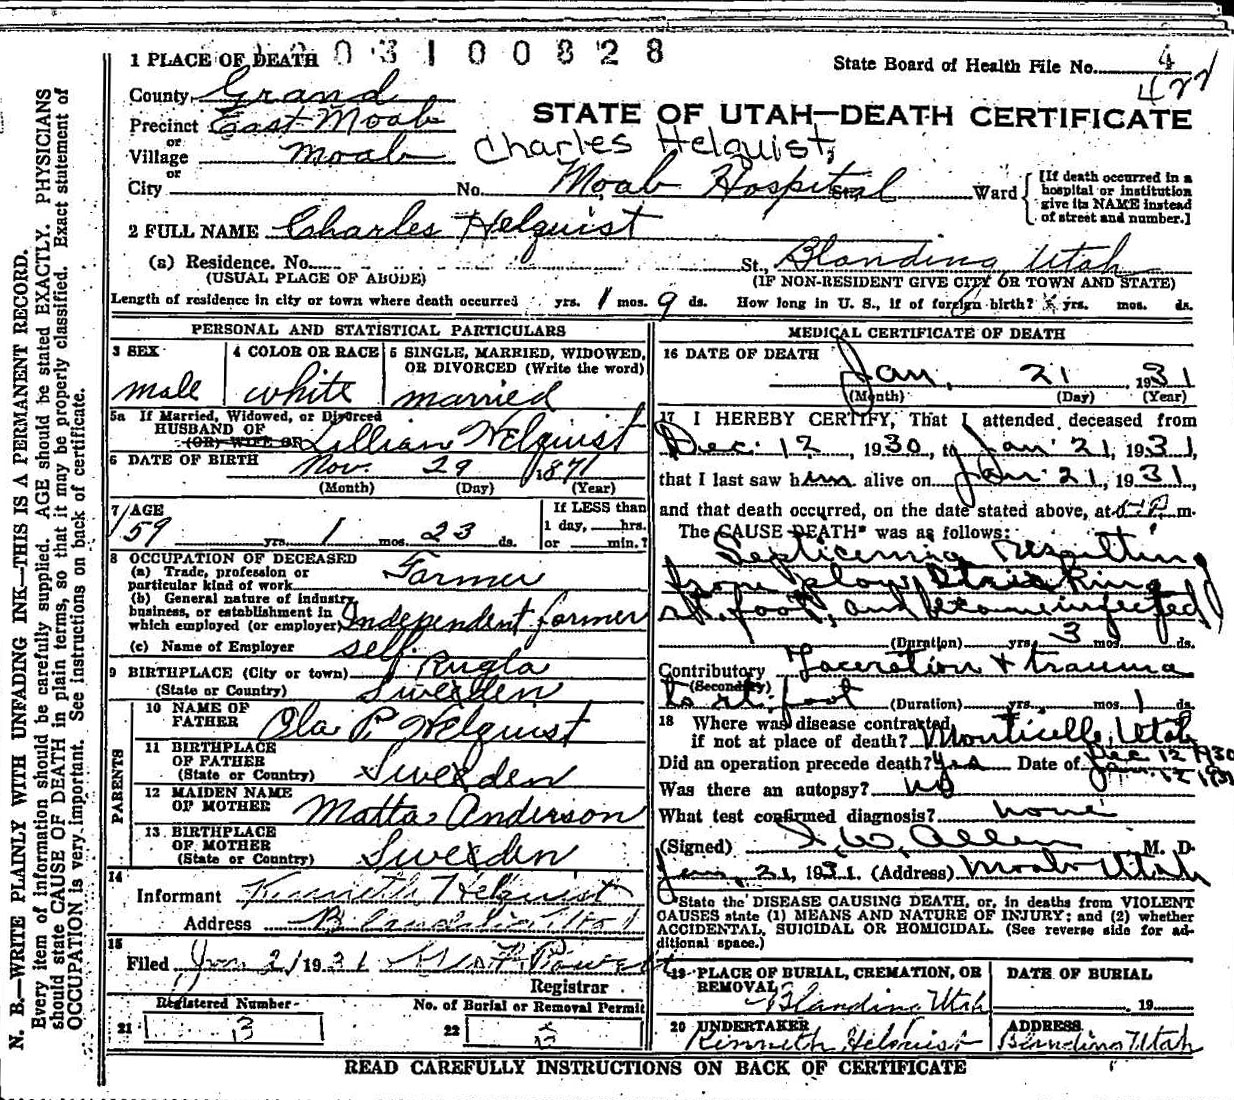 1 PLACE OF DEATH 1003100828
State Board of Health File No. 4
422
County Grand
STATE OF UTAH—DEATH CERTIFICATE
Precinct East Moab
or
Village Moab Charles Helquist,
or
City No. Moab Hospital St., Ward
[If death occurred in a hospital or institution give its NAME instead of street and number.]
2 FULL NAME Charles Helquist
(a) Residence. No. St., Blanding Utah
(USUAL PLACE OF ABODE) (IF NON-RESIDENT GIVE CITY OR TOWN AND STATE)
Length of residence in city or town where death occurred yrs. 1 mos. 9 ds. How long in U. S., if of foreign birth? yrs. mos. ds.
PERSONAL AND STATISTICAL PARTICULARS
3 SEX
male
4 COLOR OR RACE
white
5 SINGLE, MARRIED, WIDOWED, OR DIVORCED (Write the word)
married
5a If Married, Widowed, or Divorced
HUSBAND OF
(OR) WIFE OF Lillian Helquist
6 DATE OF BIRTH Nov. 29 1871
(Month) (Day) (Year)
7 AGE
59 yrs. 1 mos. 23 ds.
If LESS than
1 day, hrs.
or min.?
8 OCCUPATION OF DECEASED
(a) Trade, profession or
particular kind of work Farmer
(b) General nature of industry,
business, or establishment in
which employed (or employer) Independent farmer
(c) Name of Employer self.
9 BIRTHPLACE (City or town) Rugla
(State or Country) Sweden
PARENTS
10 NAME OF
FATHER Ola P. Helquist
11 BIRTHPLACE
OF FATHER
(State or Country) Sweden
12 MAIDEN NAME
OF MOTHER Matta Anderson
13 BIRTHPLACE
OF MOTHER
(State or Country) Sweden
14
Informant Kenneth Helquist
Address Blanding Utah
15
Filed Jan 21 1931
Registrar
Registered Number
21 3
No. of Burial or Removal Permit
22
MEDICAL CERTIFICATE OF DEATH
16 DATE OF DEATH
Jan. 21 1931
(Month) (Day) (Year)
17 I HEREBY CERTIFY, That I attended deceased from
Dec. 12, 1930, to Jan. 21, 1931,
that I last saw him alive on Jan. 21, 1931
and that death occurred, on the date stated above, at m.
The CAUSE DEATH* was as follows:
Septicemia resulting
from plow striking
rt. foot, and became infected
(Duration) yrs. 3 mos. ds.
Contributory Laceration & trauma
(Secondary)
to rt. foot (Duration) yrs. mos. 1 ds.
18 Where was disease contracted,
if not at place of death? Monticello, Utah
Did an operation precede death? Yes Date of Dec 12 1930
Jan. 12 1931
Was there an autopsy? No
What test confirmed diagnosis? none
(Signed) I. W. Allen M. D.
Jan. 21, 1931. (Address) Moab Utah
*State the DISEASE CAUSING DEATH, or, in deaths from VIOLENT
CAUSES state (1) MEANS AND NATURE OF INJURY: and (2) whether
ACCIDENTAL, SUICIDAL OR HOMICIDAL. (See reverse side for ad-
ditional space.)
19 PLACE OF BURIAL, CREMATION, OR
REMOVAL
Blanding Utah
DATE OF BURIAL
19
20 UNDERTAKER
Kenneth Helquist
ADDRESS
Blanding Utah
READ CAREFULLY INSTRUCTIONS ON BACK OF CERTIFICATE
N. B.—WRITE PLAINLY WITH UNFADING INK—THIS IS A PERMANENT RECORD.
Every item of information should be carefully supplied. AGE should be stated EXACTLY. PHYSICIANS
should state CAUSE OF DEATH in plain terms, so that it may be properly classified. Exact statement of
OCCUPATION is very important. See instructions on back of certificate.